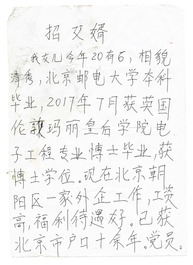 招女婿
我女儿今年20有6，相貌
清秀，北京邮电大学本科
毕业，2017年7月获英国
伦敦玛丽皇后学院电
子工程专业博士毕业，获
博士学位。现在北京朝
阳区一家外企工作，工资
高，福利待遇好。已获
北京市户口十余年。党员。